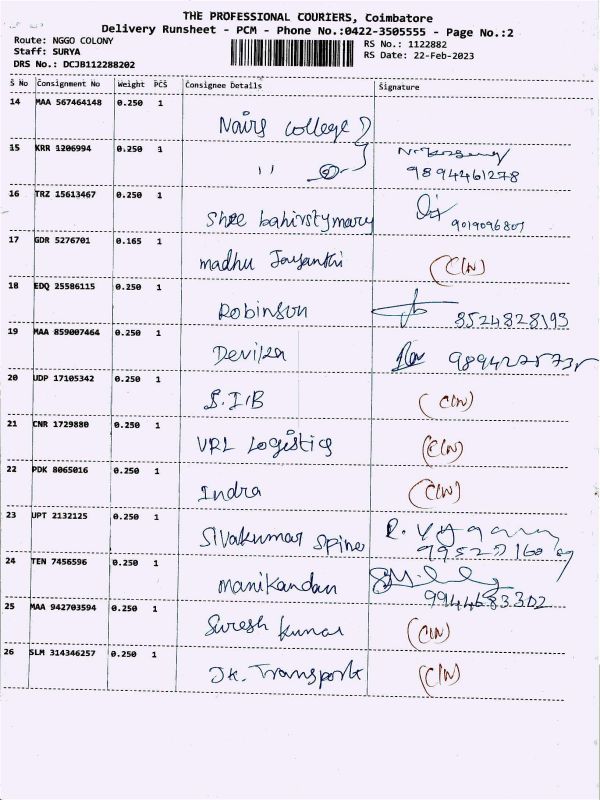 THE PROFESSIONAL COURIERS, Coimbatore
Delivery Runsheet - PCM - Phone No.:0422-3505555 - Page No.:2
Route: NGGO COLONY
RS No.: 1122882
Staff: SURYA
RS Date: 22-Feb-2023
DRS No.: DCJB112288202
S No Consignment No Weight PCS Consignee Details Signature
14 MAA 567464148 0.250 1 Nairs college
15 KRR 1206994 0.250 1 ''
9894461278
16 TRZ 15613467 0.250 1 Shree bahirstymary 9019096807
17 GDR 5276701 0.165 1 madhu Jayanthi (C/N)
18 EDQ 25586115 0.250 1 Robinson 8524828193
19 MAA 859007464 0.250 1 Devika
20 UDP 17105342 0.250 1 S.I.B (C/N)
21 CNR 1729880 0.250 1 VRL Logistics (C/N)
22 PDK 8065016 0.250 1 Indra (C/N)
23 UPT 2132125 0.250 1 Sivakumar Spine
24 TEN 7456596 0.250 1 manikandan 9944683302
25 MAA 942703594 0.250 1 Suresh kumar (C/N)
26 SLM 314346257 0.250 1 JK. Transport (C/N)